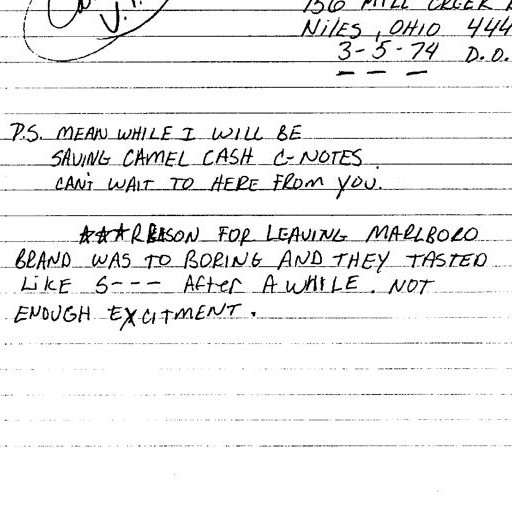 V.I.
156 MILL CREEK
NILES, OHIO 444
3-5-74 D.O.
P.S. MEAN WHILE I WILL BE
SAVING CAMEL CASH C-NOTES.
CAN'T WAIT TO HERE FROM YOU.
***REASON FOR LEAVING MARLBORO
BRAND WAS TO BORING AND THEY TASTED
LIKE S--- AFTER A WHILE. NOT
ENOUGH EXCITMENT.